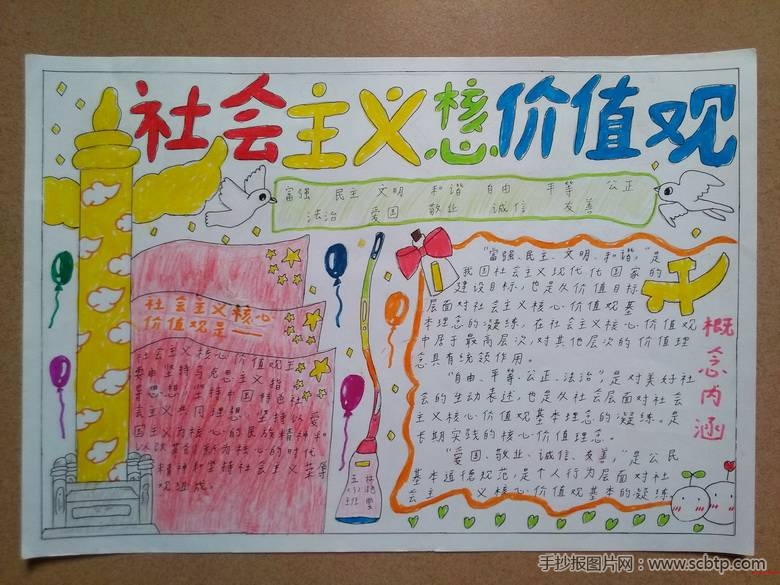 社会主义核心价值观
富强 民主 文明 和谐 自由 平等 公正
法治 爱国 敬业 诚信 友善
社会主义核心
价值观是——
社会主义核心价值观主
要由坚持马克思主义指
导思想、坚持中国特色社
会主义共同理想、坚持以爱
国主义为核心的民族精神和
以改革创新为核心的时代
精神和坚持社会主义荣辱
观组成。
"富强、民主、文明、和谐,"是
我国社会主义现代化国家的
建设目标,也是从价值目标
层面对社会主义核心价值观基
本理念的凝练,在社会主义核心价值观
中居于最高层次,对其他层次的价值理
念具有统领作用。
"自由、平等、公正、法治",是对美好社
会的生动表述,也是从社会层面对社会
主义核心价值观基本理念的凝练。是
长期实践的核心价值理念。
"爱国、敬业、诚信、友善,"是公民
基本道德规范,是个人行为层面对社
会主义核心价值观基本的凝练
概念内涵
手抄报图片网:www.scbtp.com